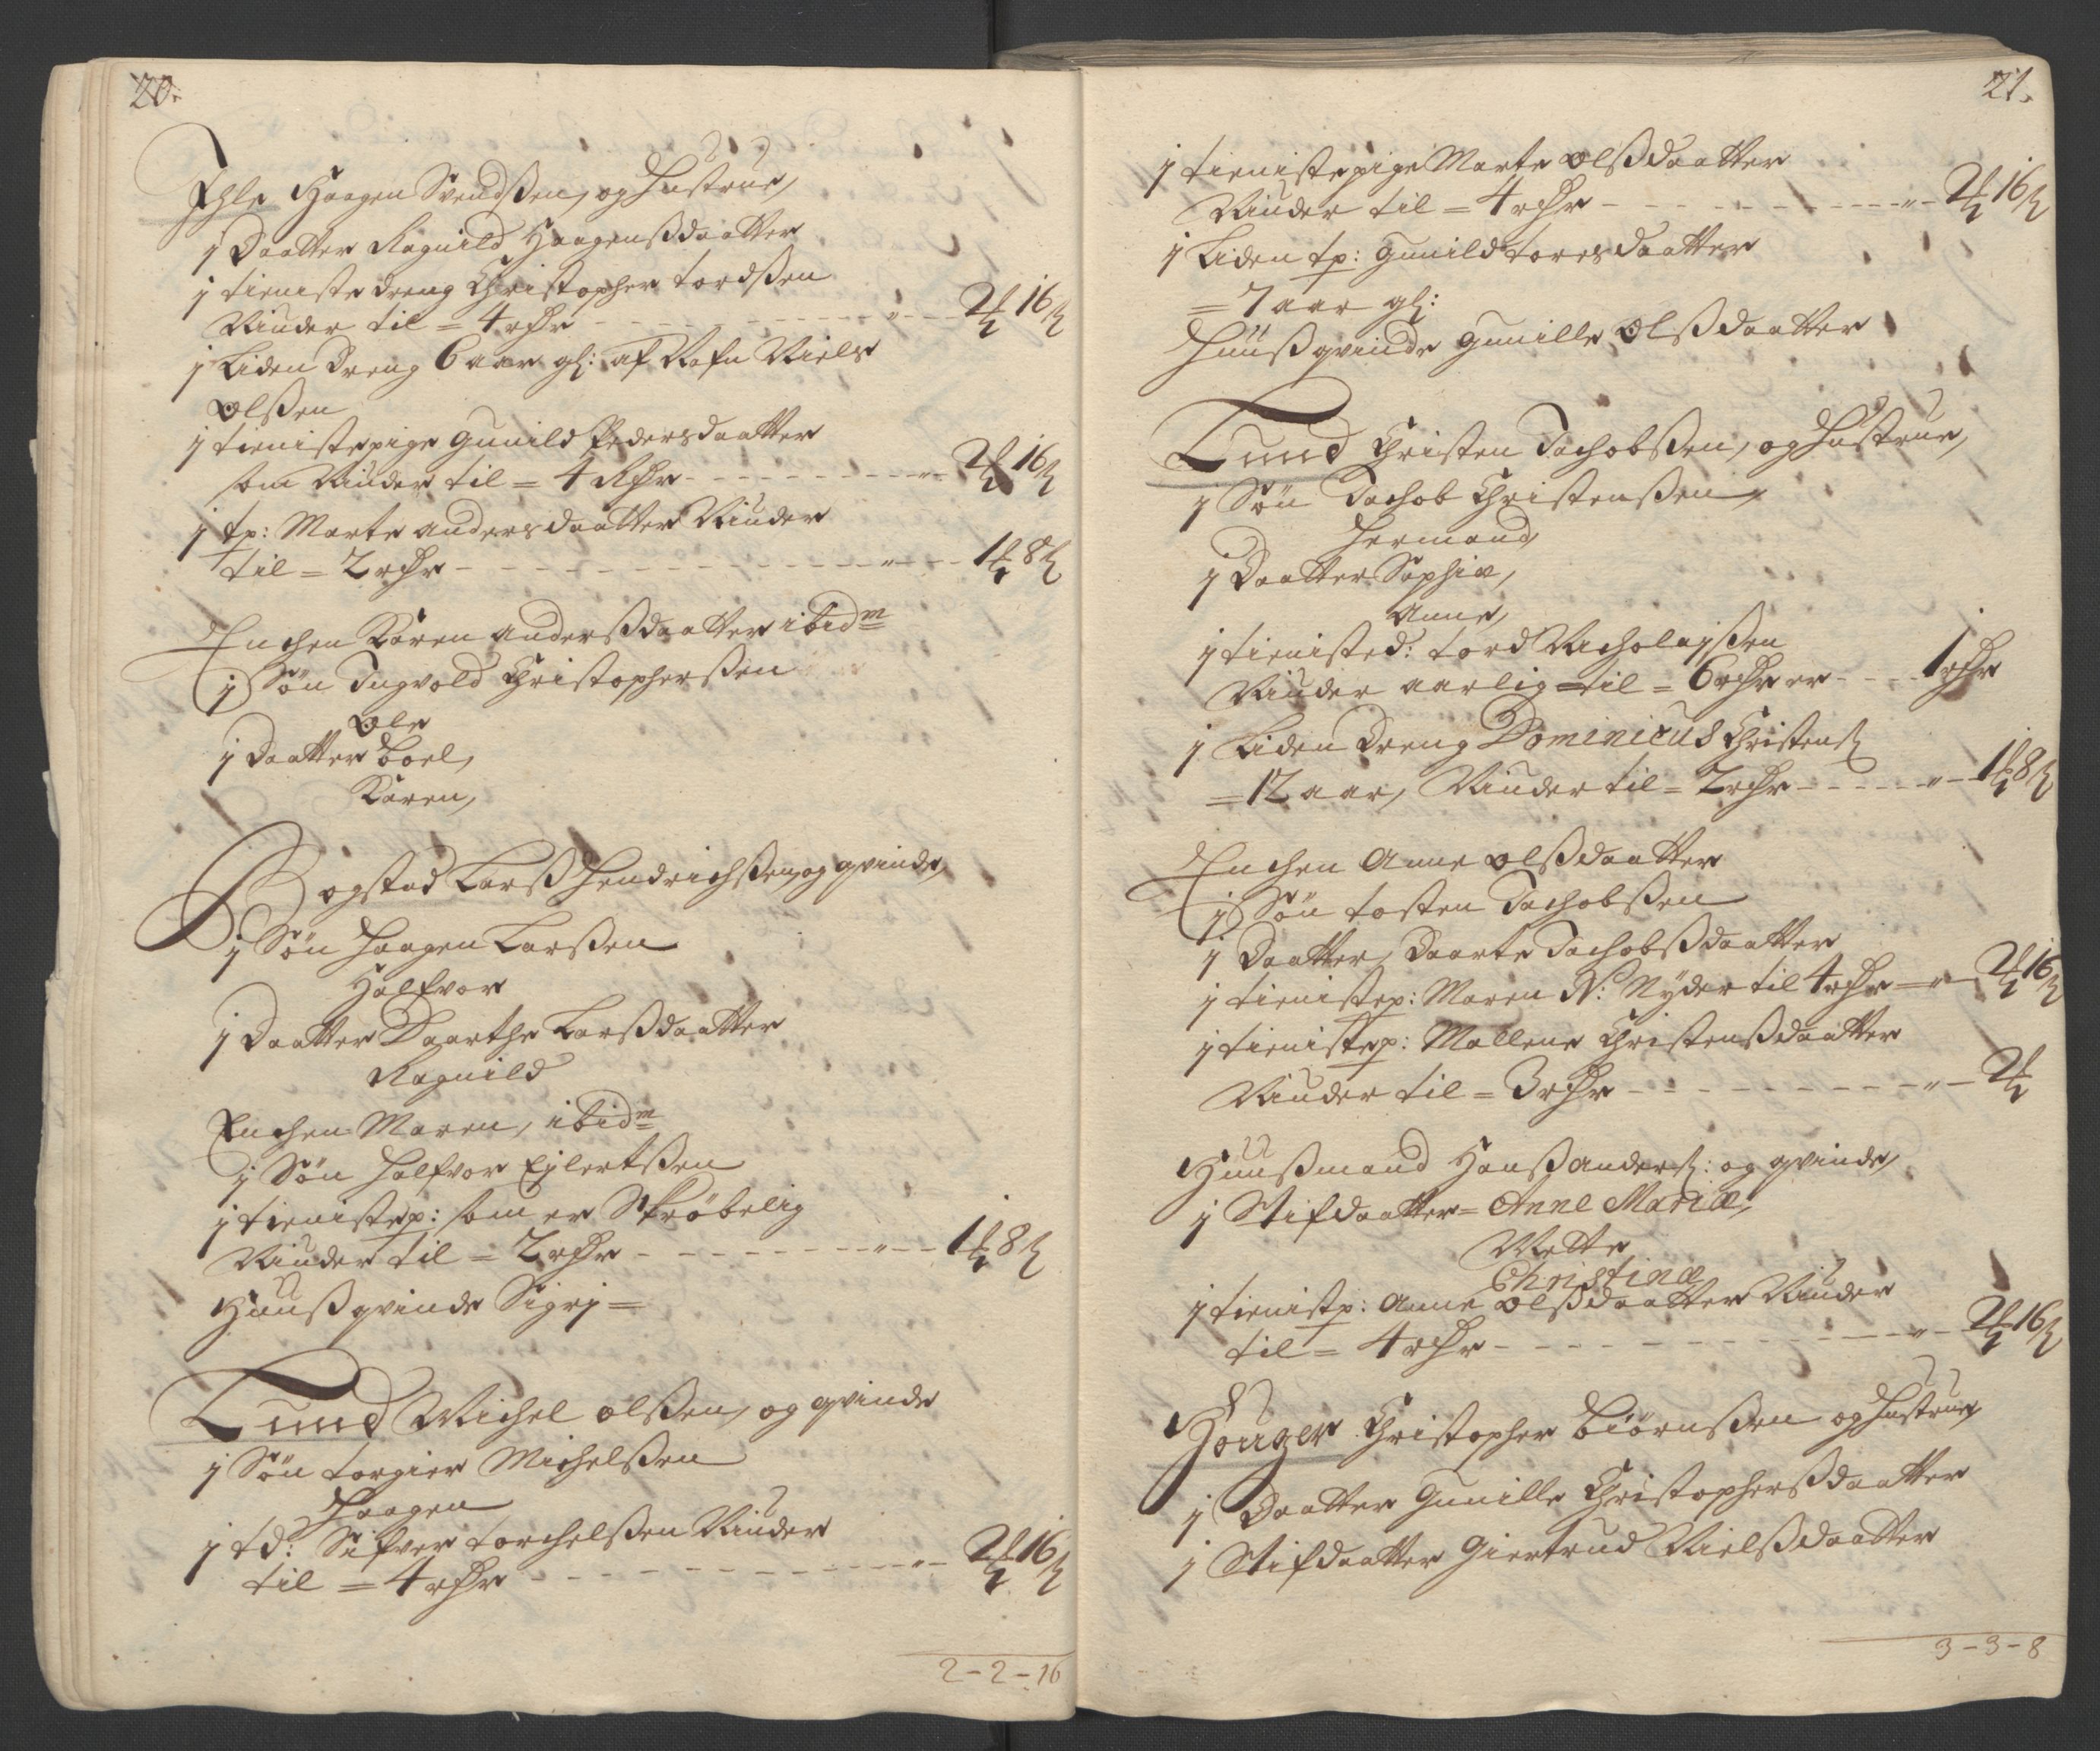 20.
Ihle Haagen Svendßen, og Hustrue,
1 Daatter Ragnild Haagenßdaatter
1 tieniste dreng Christopher tordßen
Niuder til = 4 rdr - - - - „ - - 2 ₰ 16 ß
1 Liden Dreng 6 aar gl: af Nafn Niels
Olßen
1 tienistepige Gunild Pedersdaatter
som Niuder til = 4 Rdr - - - - „ - 2 ₰ 16 ß
1 tp: Marte andersdaatter Niuder
til = 2 rdr - - - - „ - - 1 ₰ 8 ß
Enchen Karen anderßdaatter ibidm
1 Søn Ingvold Christopherßen
Ole
1 Daatter Boel,
Karen,
Bogstad Larß Hendrichßen, og qvinde,
1 Søn Haagen Larßen
Halfvor
1 Daatter Daarthe Larßdaatter
Ragnild
Enchen Maren, ibidm
1 Søn Halfvor Ejlertßen
1 tienistep: som er Skrøbelig
Niuder til = 2 rdr - - - - „ - - 1 ₰ 8 ß
Huußqvinde Sigrj =
Lund Michel olßen, og qvinde
1 Søn torgier Michelßen
Haagen
1 td: Sifver torchelßen Niuder
til = 4 rdr - - - - „ - 2 ₰ 16 ß
2 - 2 - 16
21.
1 tienistepige Marte olßdaatter
Niuder til = 4 rdr - - - - „ - 2 ₰ 16 ß
1 Liden tp: Gunild toresdaatter
= 7 aar gl:
Huußqvinde Gunille Olßdaatter
Lund Christen Jachobßen, og Hustrue,
1 Søn Jachob Christenßen,
Hermand,
1 Daatter Sophia,
Anne,
1 tienisted: tord Nicholajßen
Niuder aarlig til = 6 rdr er - - - 1 rdr
1 Liden Dreng Dominicus Christenß
= 12 aar, Niuder til = 2 rdr - - - - „ - 1 ₰ 8 ß
Enchen Anne olßdaatter
1 Søn tosten Jachobßen
1 Daatter, Daarte Jachobßdaatter
1 tienistep: Maren N: Nyder til 4 rdr - „ - 2 ₰ 16 ß
1 tienistep: Mallene Christenßdaatter
Niuder til = 3 rdr - - - - „ - 2 ₰
Huußmand Hanß anderß: og qvinde,
1 Stifdaatter = Anne Maria,
Mette
Christina
1 tienistp: Anne olßdaatter Niuder
til = 4 rdr - - - - „ - 2 ₰ 16 ß
Houger Christopher Biørnßen og Hustrue,
1 Daatter Gunille Christopherßdaatter
1 Stifdaatter Giertrud Nielßdaatter
3 - 3 - 8